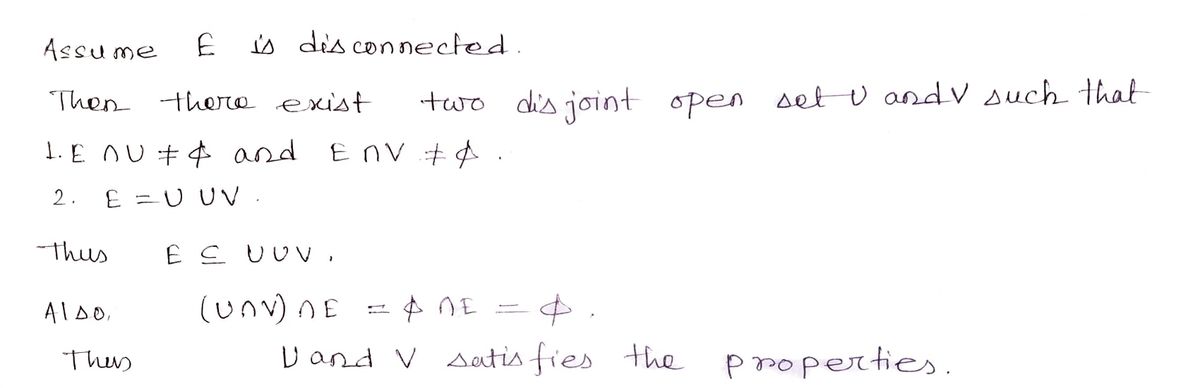 Assume E is disconnected.
Then there exist two disjoint open set U and V such that
1. E ∩ U ≠ ϕ and E ∩ V ≠ ϕ.
2. E = U ∪ V.
Thus E ⊆ U ∪ V.
Also, (U ∩ V) ∩ E = ϕ ∩ E = ϕ.
Thus U and V satisfies the properties.